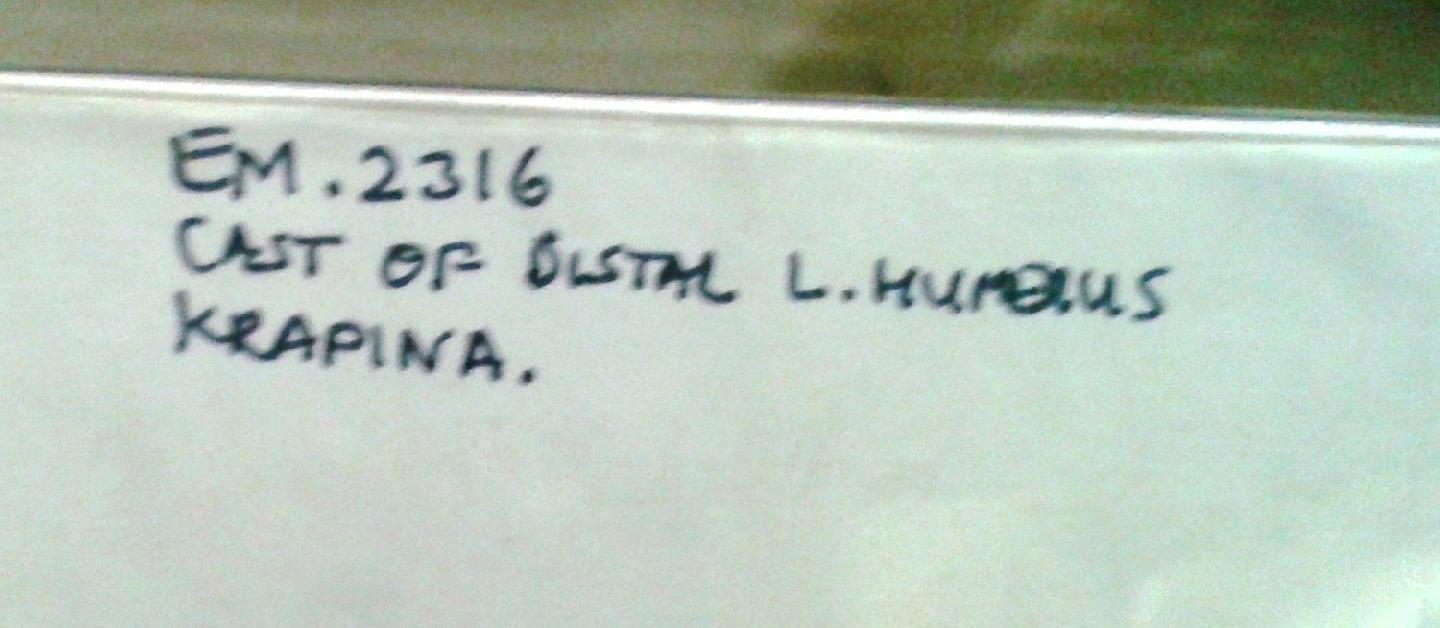 EM.2316
CAST OF DISTAL L.HUMERUS
KRAPINA.